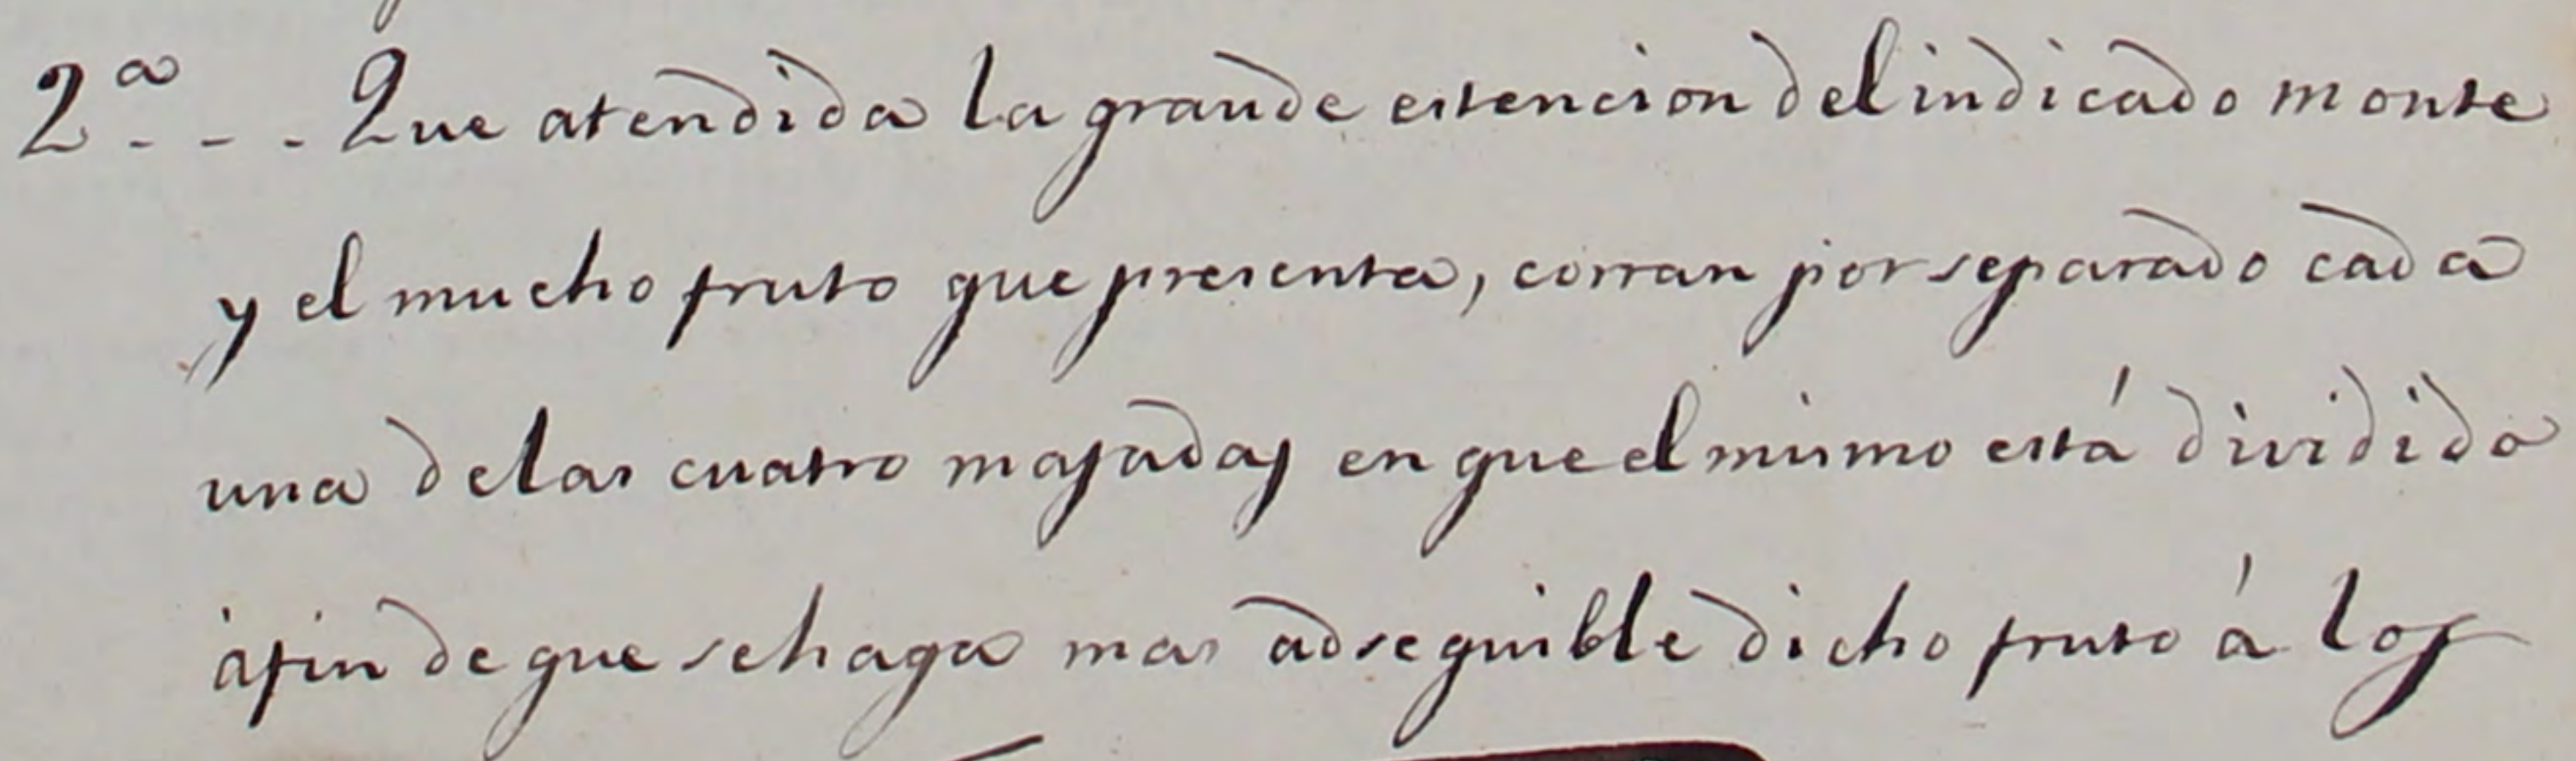 2ª - - - Que atendida la grande estencion del indicado monte
y el mucho fruto que presenta, corran por separado cada
una de las cuatro majadas en que el mismo está dividido
á fin de que se haga mas adsequible dicho fruto á los